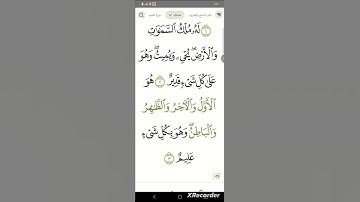 ١ لَهُۥ مُلْكُ ٱلسَّمَٰوَٰتِ
وَٱلْأَرْضِ ۖ يُحْىِۦ وَيُمِيتُ ۖ وَهُوَ
عَلَىٰ كُلِّ شَىْءٍ قَدِيرٌ ٢ هُوَ
ٱلْأَوَّلُ وَٱلْءَاخِرُ وَٱلظَّٰهِرُ
وَٱلْبَاطِنُ ۖ وَهُوَ بِكُلِّ شَىْءٍ
عَلِيمٌ ٣
XRecorder